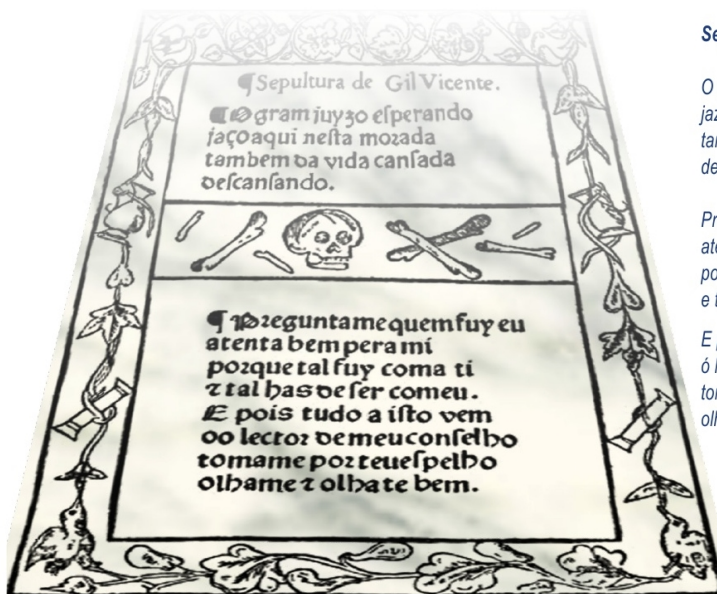 ¶ Sepultura de Gil Vicente.
¶ O gram juyzo eſperando
jaço aqui neſta morada
tambem da vida canſada
deſcanſando.
¶ Preguntame quem fuy eu
atenta bem pera mi
porque tal fuy coma ti
⁊ tal has de ſer comeu.
E pois tudo a iſto vem
oo lector de meu conſelho
tomame por teu eſpelho
olhame ⁊ olhate bem.
Se
O
jaz
ta
de
Pr
ate
po
e t
E
ó
to
ol